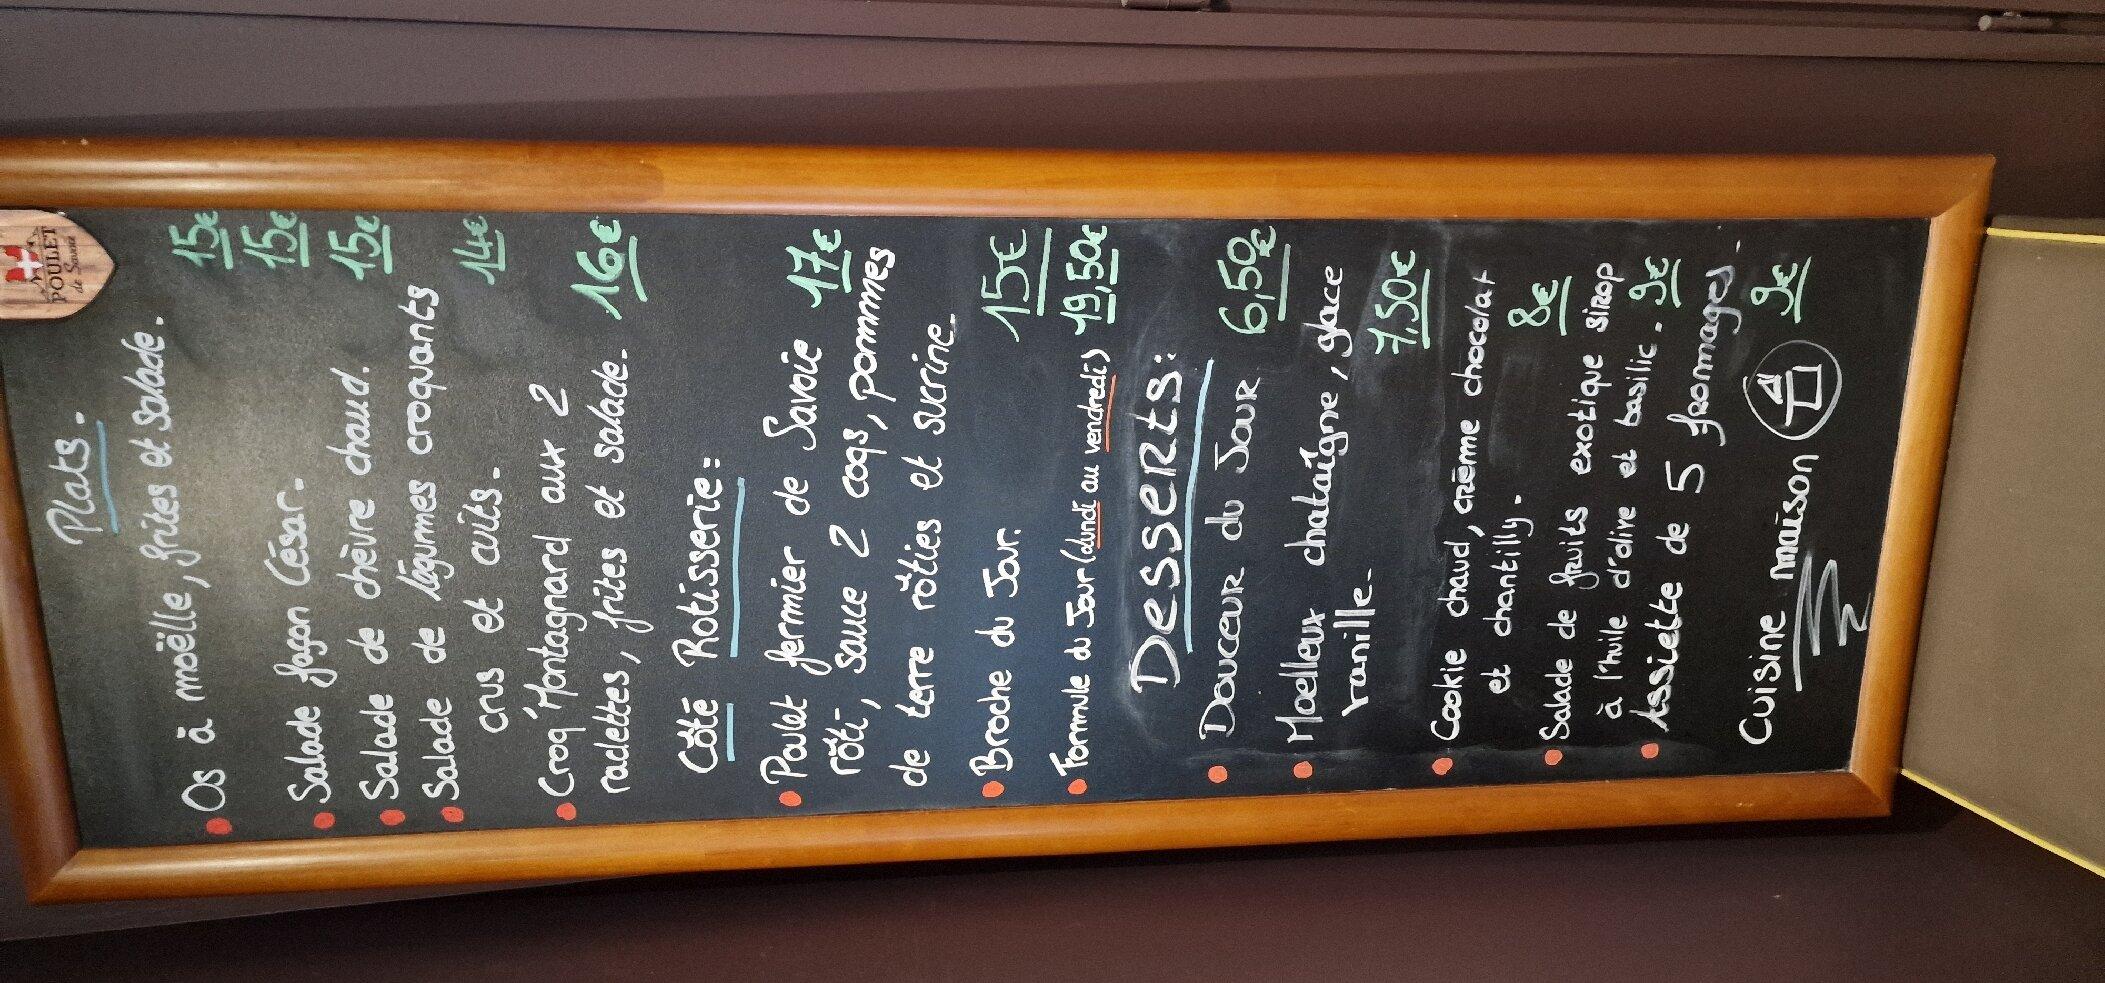 POULET
de Savoie
Plats.
Os à moëlle, frites et salade. 15€
Salade façon César. 15€
Salade de chèvre chaud. 15€
Salade de légumes croquants
crus et cuits. 14€
Croq'Montagnard aux 2
raclettes, frites et salade. 16€
Côté Rotisserie:
Poulet fermier de Savoie 17€
rôti, sauce 2 coqs, pommes
de terre rôties et sucrine.
Broche du Jour. 15€
Formule du Jour (lundi au vendredi) 19,50€
Desserts:
Douceur du Jour 6,50€
Moelleux chataîgne, glace
vanille. 7,50€
Cookie chaud, crème chocolat
et chantilly. 8€
Salade de fruits exotique sirop
à l'huile d'olive et basilic. 9€
Assiette de 5 fromages. 9€
Cuisine maison